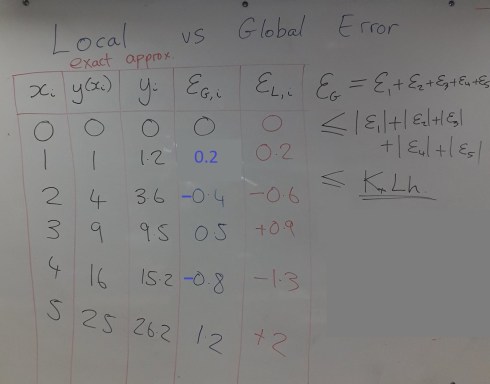 Local vs Global Error
exact approx.
xᵢ y(xᵢ) yᵢ Ɛ_G,i Ɛ_L,i
0 0 0 0 0
1 1 1.2 0.2 0.2
2 4 3.6 -0.4 -0.6
3 9 9.5 0.5 +0.9
4 16 15.2 -0.8 -1.3
5 25 26.2 1.2 +2
Ɛ_G = Ɛ₁+Ɛ₂+Ɛ₃+Ɛ₄+Ɛ₅
≤ |Ɛ₁|+|Ɛ₂|+|Ɛ₃|
+|Ɛ₄|+|Ɛ₅|